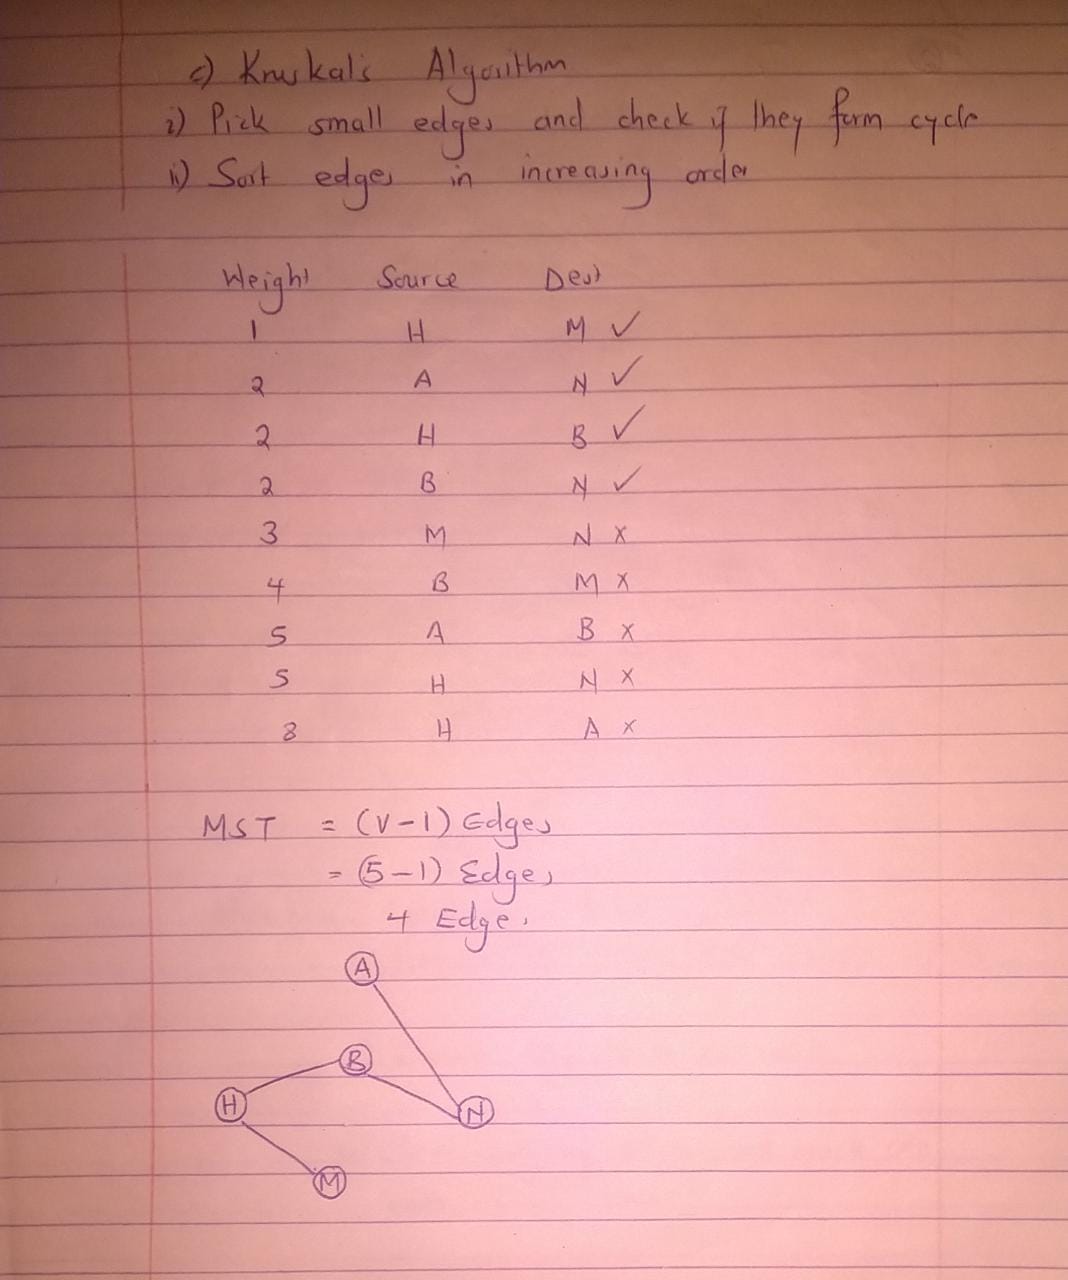 c) Kruskal's Algorithm
i) Pick small edges and check if they form cycle
ii) Sort edges in increasing order
Weight Source Dest
1 H M ✓
2 A N ✓
2 H B ✓
2 B N ✓
3 M N x
4 B M x
5 A B x
5 H N x
8 H A x
MST = (V-1) Edges
= (5-1) Edges
4 Edges
A
B
H N
M